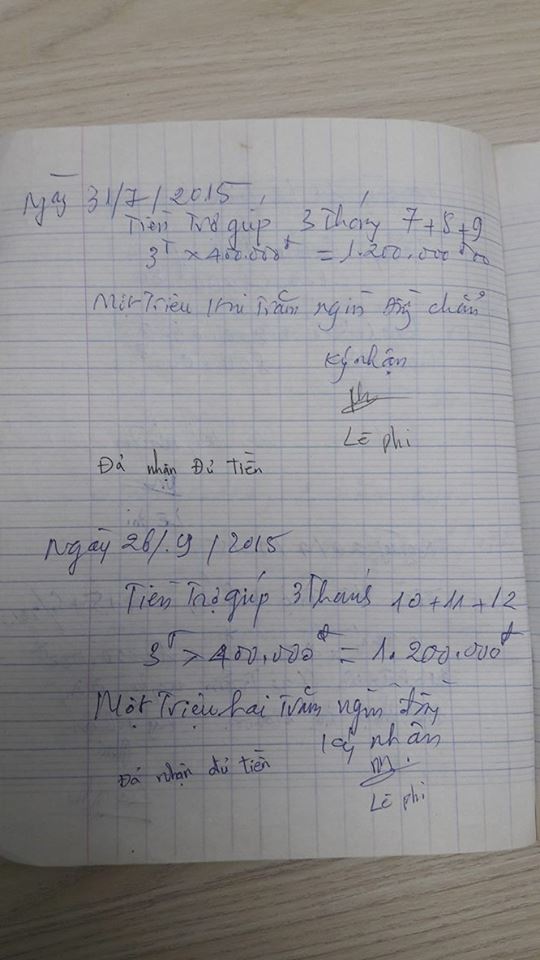 Ngày 31/7/2015
Tiền Trợ giúp 3 Tháng 7+8+9
3T × 400.000đ = 1.200.000đ00
Một Triệu Hai Trăm ngìn đồng chẩn
Ký nhận
Lê phi
Đả nhận Đủ tiền
Ngày 26/.9/2015
Tiền Trợ giúp 3 Tháng 10+11+12
3T × 400.000đ = 1.200.000đ
Một Triệu hai Trăm ngìn đồng
Ký nhân
Đả nhận đủ tiền
Lê phi